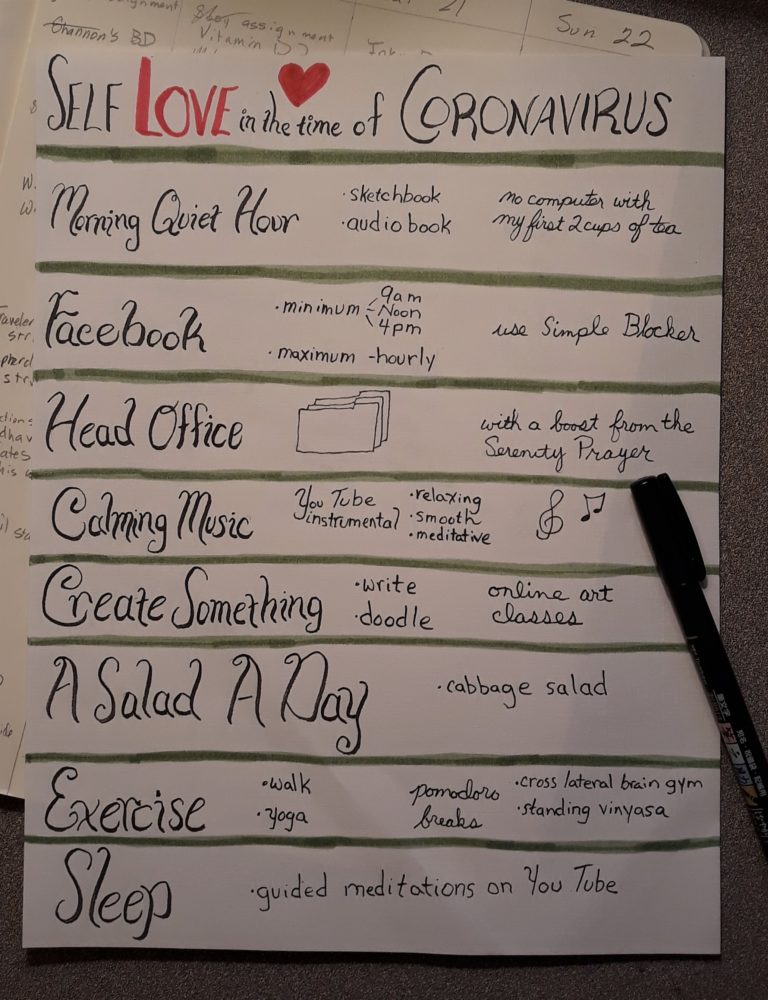 assignment
Channon's BD
assignment
Vitamin D
21
Sun 22
SELF LOVE in the time of CORONAVIRUS
Morning Quiet Hour
· sketchbook
· audio book
no computer with
my first 2 cups of tea
Facebook
· minimum
9am
Noon
4pm
· maximum - hourly
use Simple Blocker
Head Office
with a boost from the
Serenity Prayer
Calming Music
You Tube
instrumental
· relaxing
· smooth
· meditative
Create Something
· write
· doodle
online art
classes
A Salad A Day
· cabbage salad
Exercise
· walk
· yoga
pomodoro
breaks
· cross lateral brain gym
· standing vinyasa
Sleep
· guided meditations on You Tube